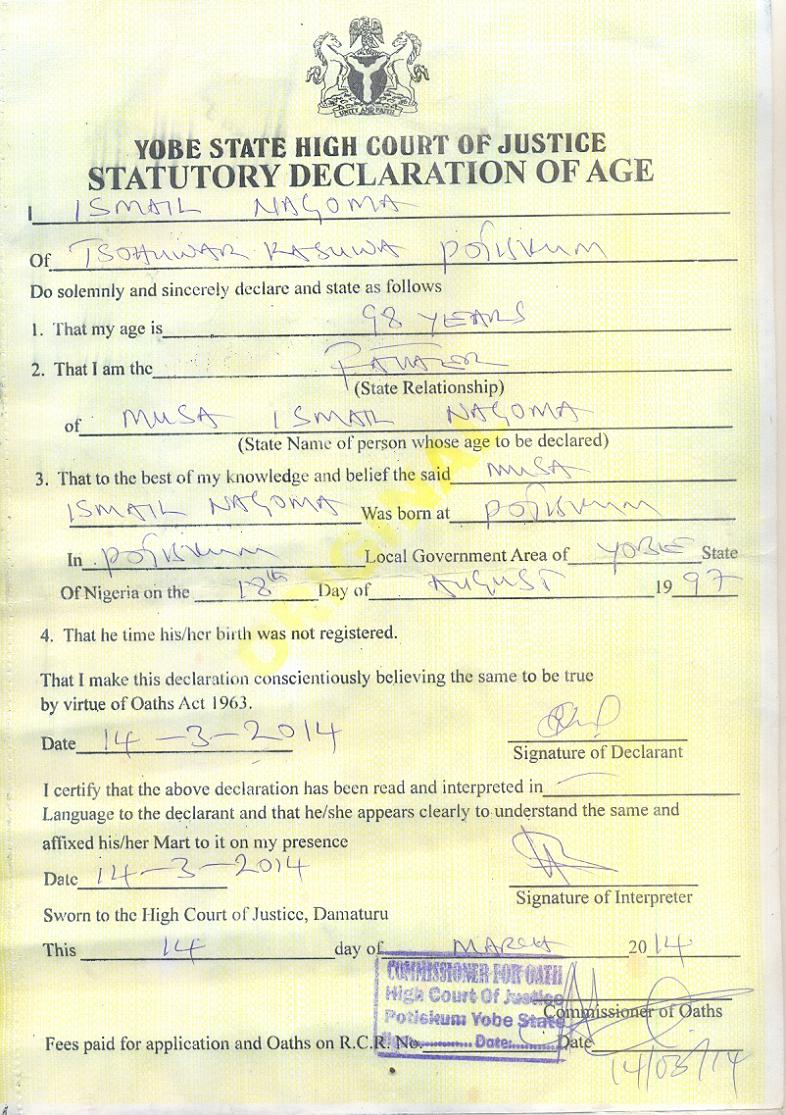 UNITY AND FAITH
YOBE STATE HIGH COURT OF JUSTICE
STATUTORY DECLARATION OF AGE
I ISMAIL NAGOMA
Of TSOHUWAR KASUWA POTISKUM
Do solemnly and sincerely declare and state as follows
1. That my age is 98 YEARS
2. That I am the FATHER
(State Relationship)
of MUSA ISMAIL NAGOMA
(State Name of person whose age to be declared)
3. That to the best of my knowledge and belief the said MUSA
ISMAIL NAGOMA Was born at POTISKUM
In POTISKUM Local Government Area of YOBE State
Of Nigeria on the 18th Day of AUGUST 1997
4. That he time his/her birth was not registered.
ORIGINAL
That I make this declaration conscientiously believing the same to be true
by virtue of Oaths Act 1963.
Date 14-3-2014
Signature of Declarant
I certify that the above declaration has been read and interpreted in
Language to the declarant and that he/she appears clearly to understand the same and
affixed his/her Mart to it on my presence
Date 14-3-2014
Signature of Interpreter
Sworn to the High Court of Justice, Damaturu
This 14 day of MARCH 2014
COMMISSIONER FOR OATH
High Court Of Justice
Potiskum Yobe State
Date:
Commissioner of Oaths
Fees paid for application and Oaths on R.C.R. No. Date 14/03/14